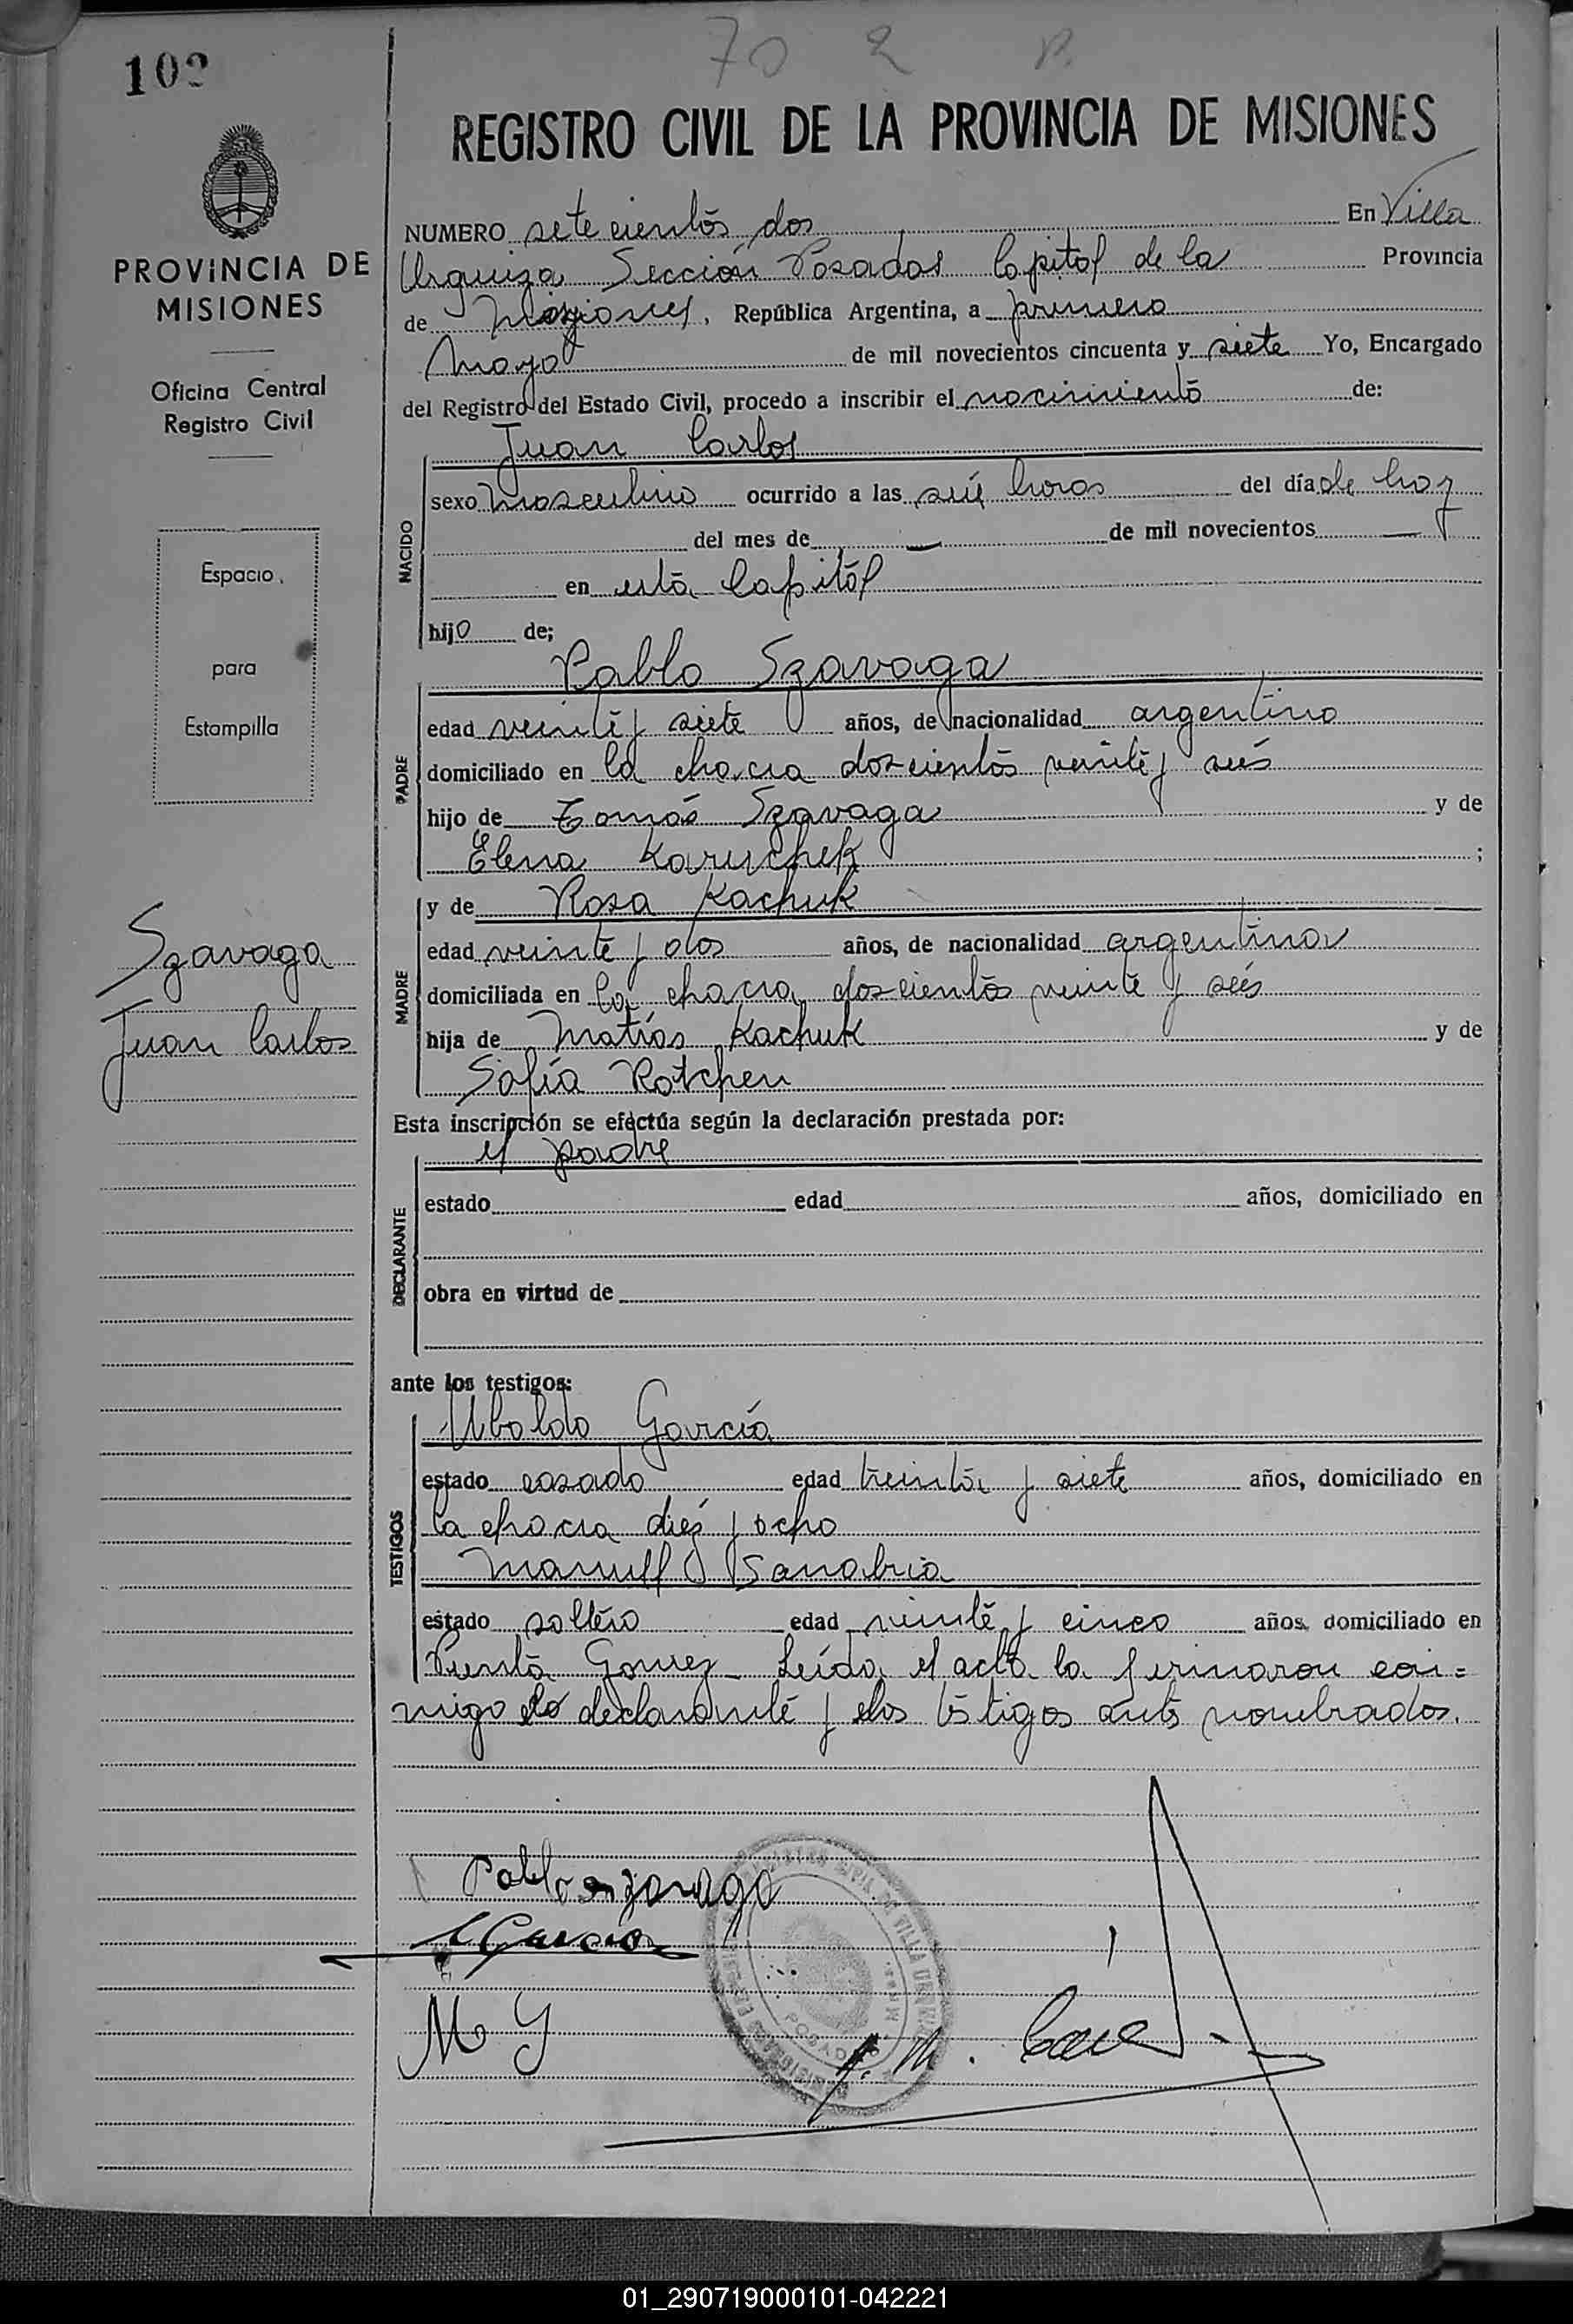 70 2
102
REGISTRO CIVIL DE LA PROVINCIA DE MISIONES
PROVINCIA DE
MISIONES
Oficina Central
Registro Civil
Espacio
para
Estampilla
Szavaga
Juan Carlos
NUMERO setecientos dos En Villa
Urquiza Sección Posadas Capital de la Provincia
de Misiones, República Argentina, a primero
Mayo de mil novecientos cincuenta y siete Yo, Encargado
del Registro del Estado Civil, procedo a inscribir el nacimiento de:
Juan Carlos
NACIDO
sexo masculino ocurrido a las seis horas del día de hoy
del mes de — de mil novecientos —
en esta Capital
hijo de;
Pablo Szavaga
PADRE
edad veinte y siete años, de nacionalidad argentino
domiciliado en la chacra doscientos veinte y seis
hijo de Tomás Szavaga y de
Elena ;
y de Rosa Kachuk
MADRE
edad veinte y dos años, de nacionalidad argentina
domiciliada en la chacra doscientos veinte y seis
hija de Matías Kachuk y de
Sofía Rotchen
Esta inscripción se efectúa según la declaración prestada por:
el padre
DECLARANTE
estado edad años, domiciliado en
obra en virtud de
ante los testigos:
Ubaldo García
TESTIGOS
estado casado edad treinta y siete años, domiciliado en
la chacra diez y ocho
Manuel Sanabria
estado soltero edad veinte y cinco años, domiciliado en
Punta Gomez - Leída el acta la firmaron con=
migo el declarante y los testigos ante nombrados.
Pablo
García
M
POSADAS
01_290719000101-042221